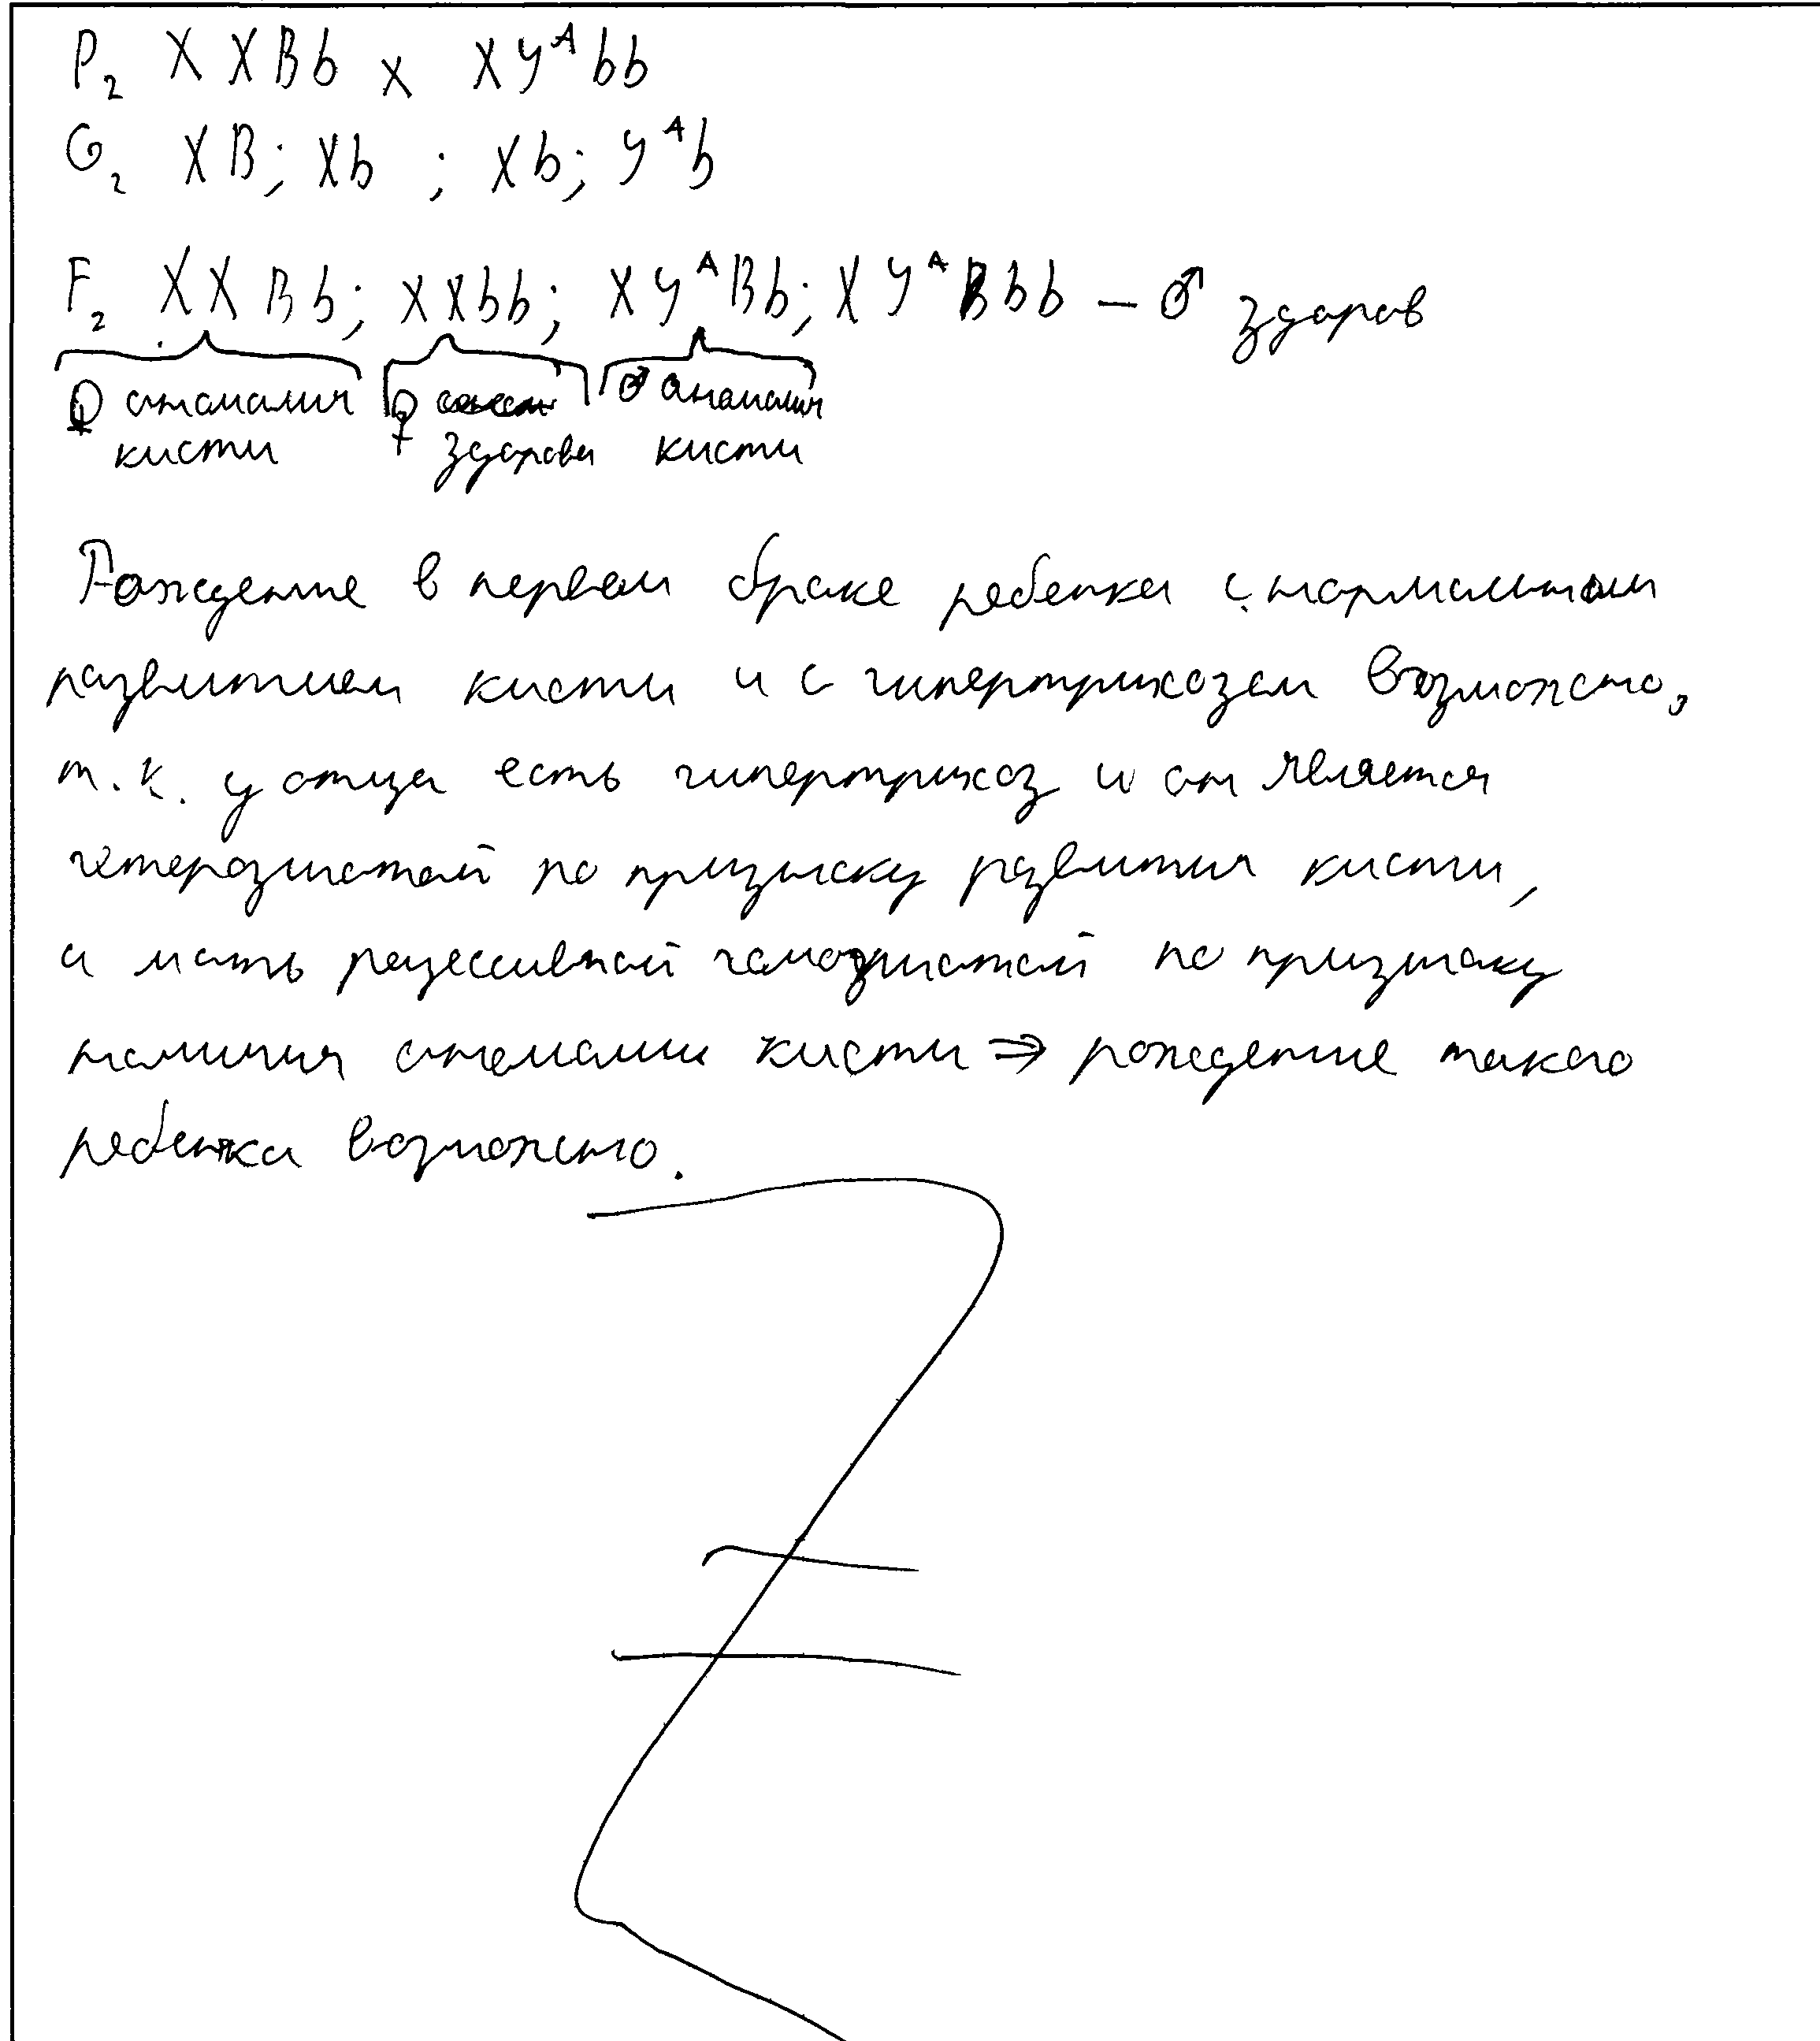 P₂ X X B b x X Y^A b b
G₂ X B; X b ; X b; Y^A b
F₂ X X B b; X X b b; X Y^A B b; X Y^A b b – ♂ здоров
♀ аномалия ♀ ♂ аномалия
кисти здорова кисти
Рождение в первом браке ребенка с нормальным
развитием кисти и с гипертрихозом возможно,
т.к. у отца есть гипертрихоз и он является
гетерозиготой по признаку развития кисти,
а мать рецессивной гомозиготой по признаку
наличия аномалии кисти ⇒ рождение такого
ребенка возможно.